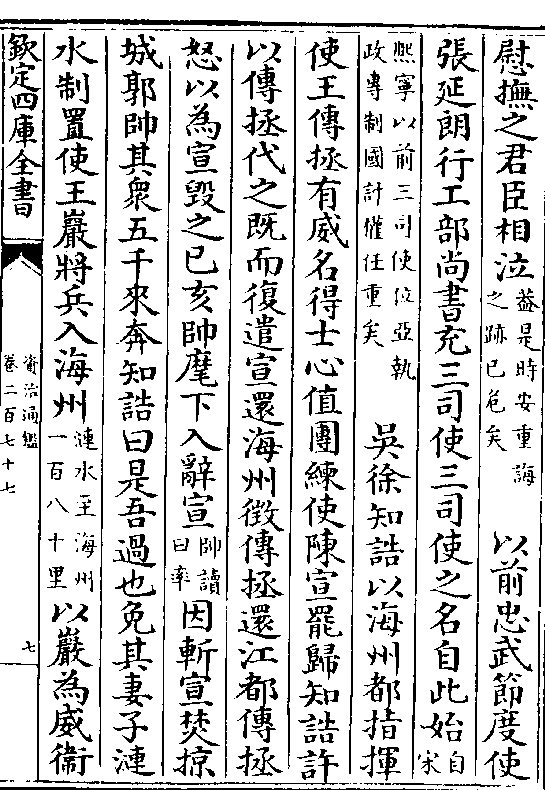 慰撫之君臣相泣葢是時安重誨之跡已危矣以前忠武節度使
張延朗行工部尚書充三司使三司使之名自此始自宋
熙寧以前三司使位亞執政專制國計權任重矣吳徐知誥以海州都指揮
使王傳拯有威名得士心值團練使陳宣罷歸知誥許
以傳拯代之既而復遣宣還海州徴傳拯還江都傳拯
怒以為宣毀之已亥帥麾下入辭宣帥讀曰率因斬宣焚掠
城郭帥其衆五千來奔知誥曰是吾過也免其妻子漣
水制置使王巖將兵入海州漣水至海州一百八十里以巖為威衞
欽定四庫全書
資治通鑑
卷二百七十七
七